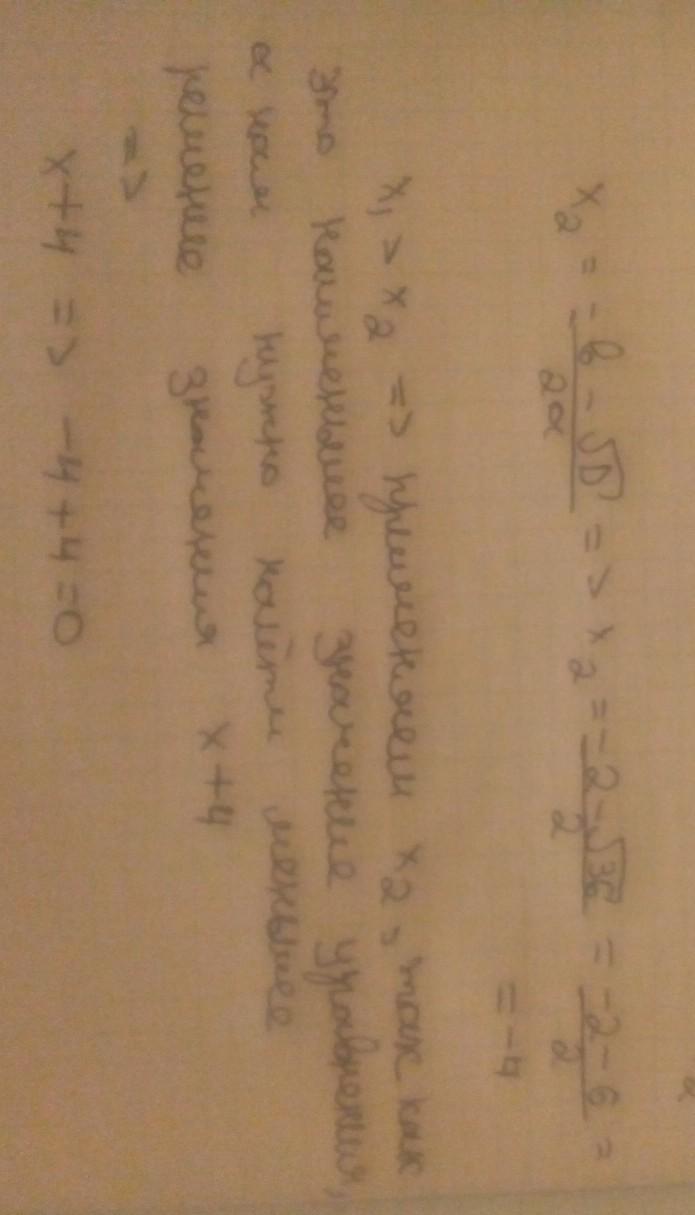 x₂ = -b - √D / 2a => x₂ = -2 - √36 / 2 = -2 - 6 / 2 =
= -4
x₁ > x₂ => применяем x₂, так как
это наименьшее значение уравнения,
а нам нужно найти меньшее
решение значения x+4
=>
x+4 => -4+4=0